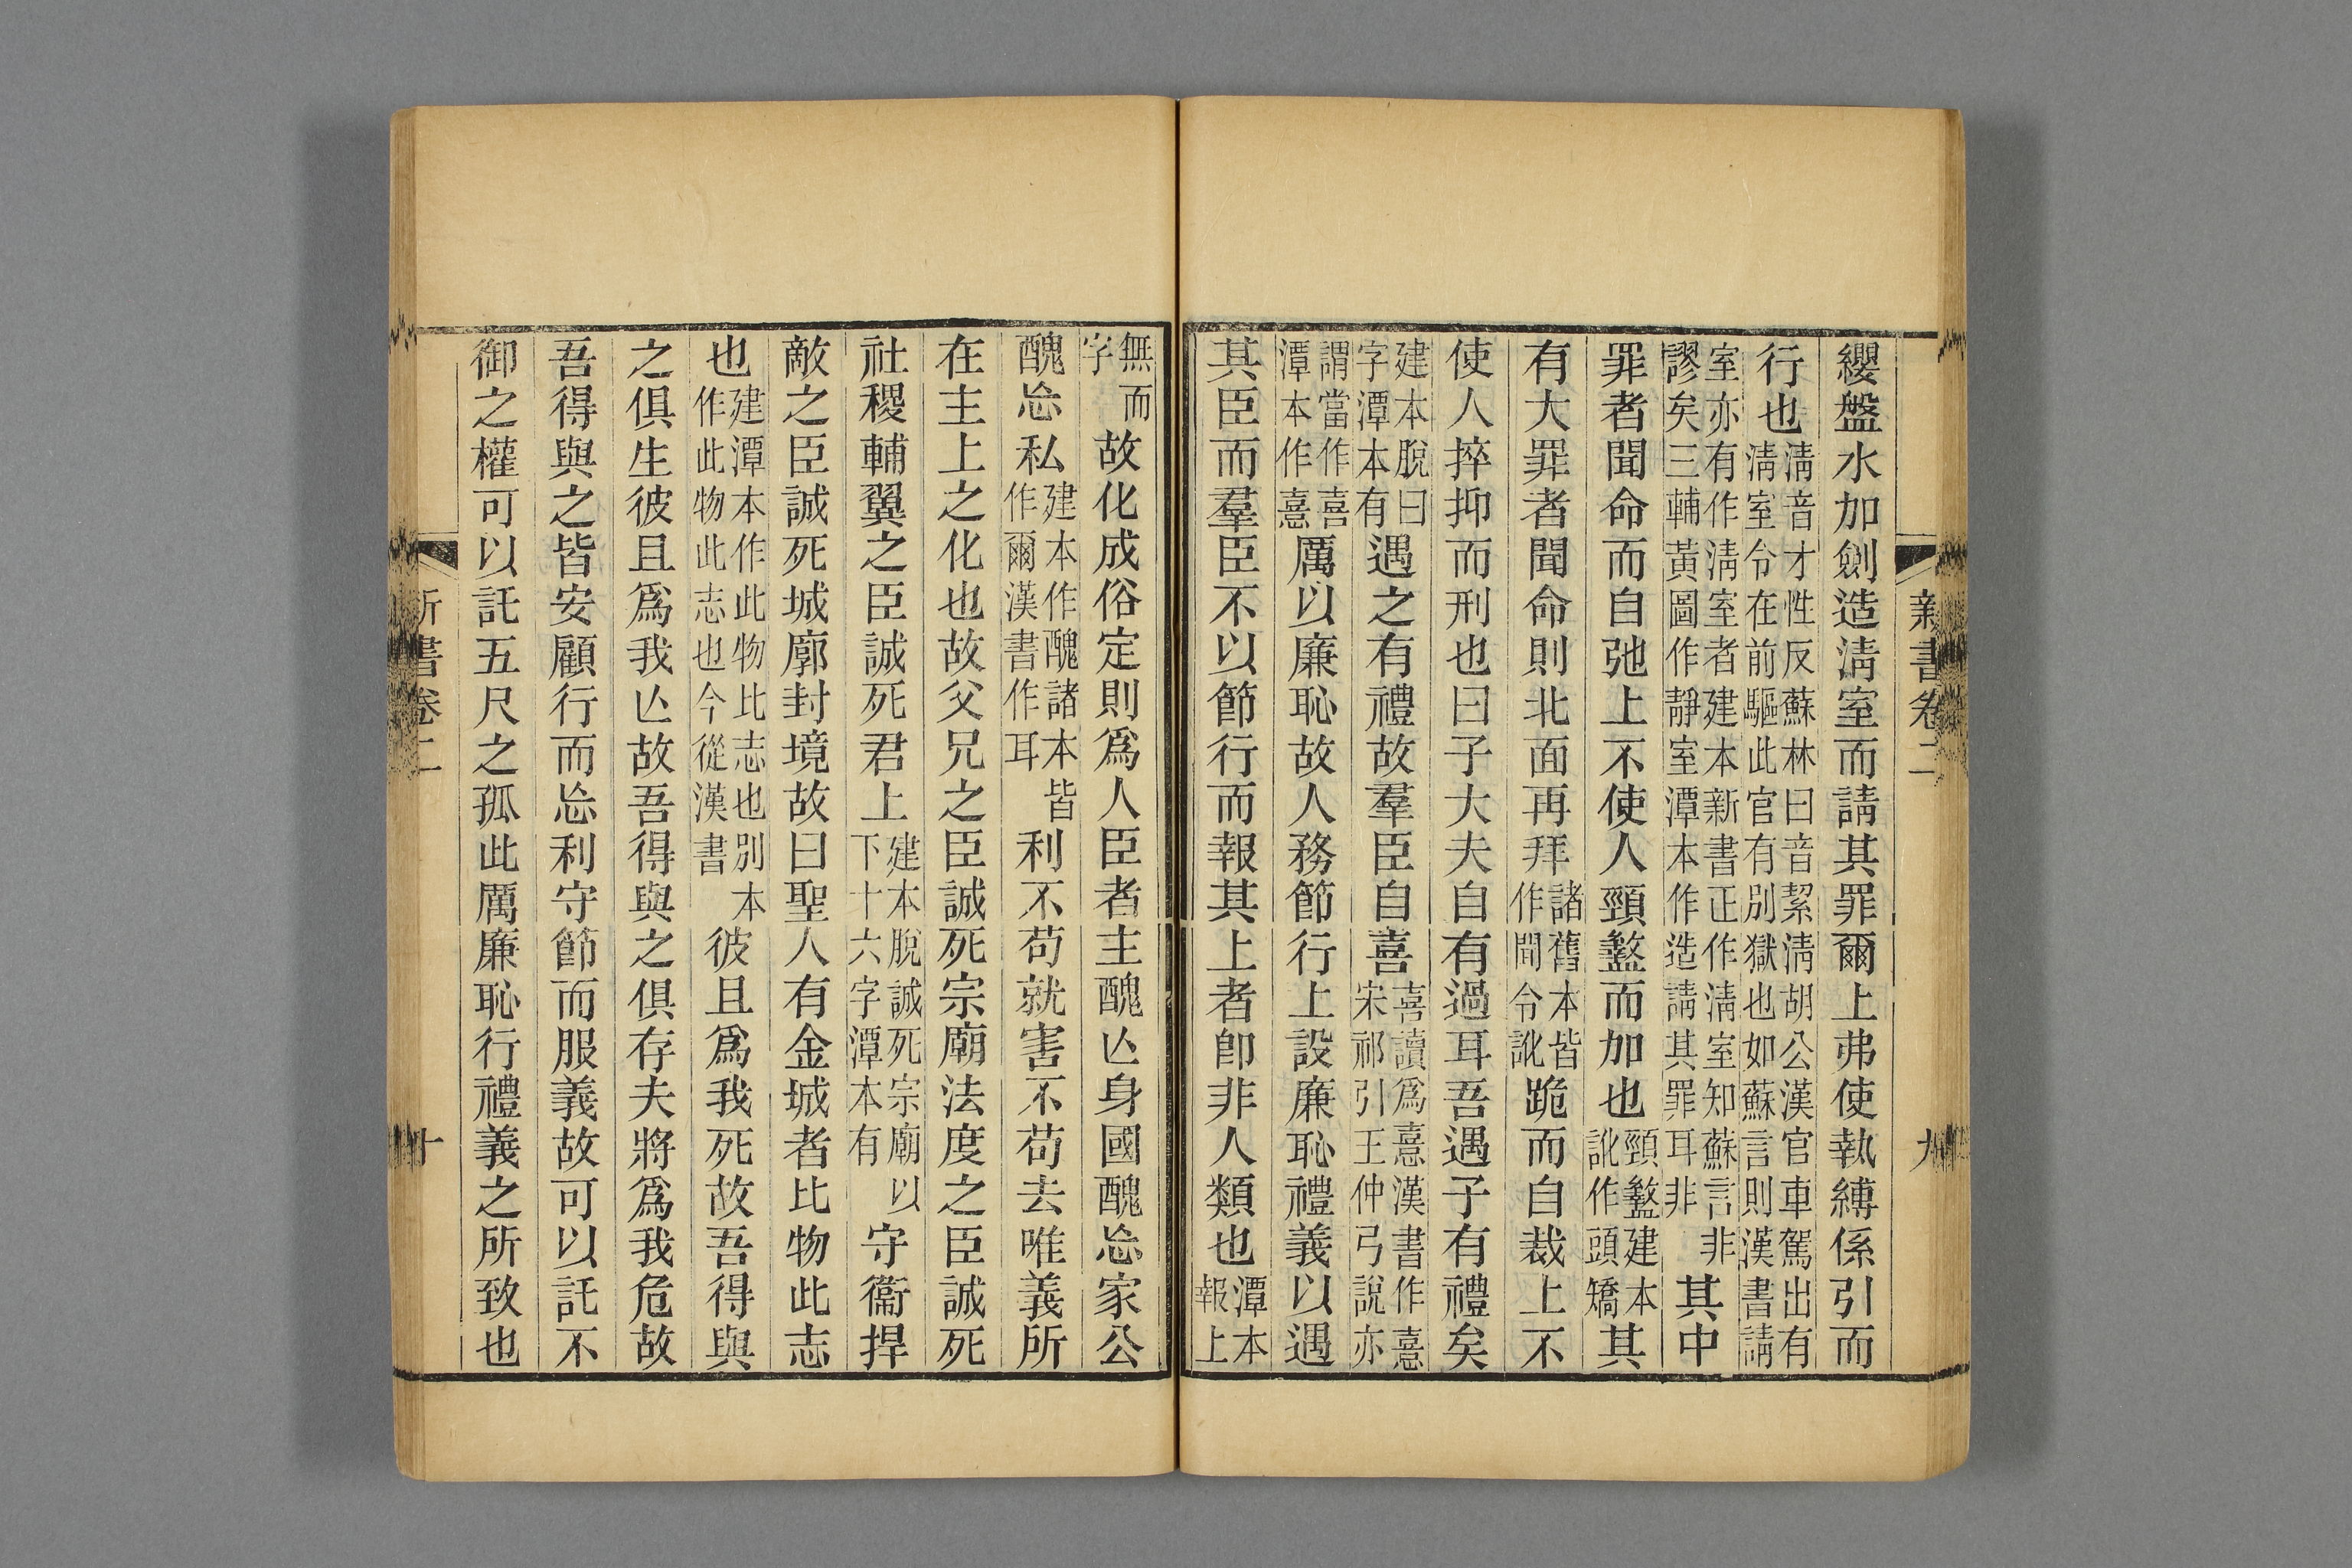 新書卷二　九
纓盤水加劍造淸室而請其罪爾上弗使執縛係引而
行也淸音才性反蘇林曰音絜淸胡公漢官車駕出有淸室令在前驅此官有別獄也如蘇言則漢書請
室亦有作淸室者建本新書正作淸室知蘇言非謬矣三輔黃圖作靜室潭本作造請其罪耳非其中
罪者聞命而自弛上不使人頸盭而加也頸盭建本訛作頭矯其
有大罪者聞命則北面再拜諸舊本皆作聞令訛跪而自裁上不
使人捽抑而刑也曰子大夫自有過耳吾遇子有禮矣
建本脫曰字潭本有遇之有禮故羣臣自喜喜讀爲憙漢書作憙宋祁引王仲弓說亦
謂當作喜潭本作憙厲以廉恥故人務節行上設廉恥禮義以遇
其臣而羣臣不以節行而報其上者卽非人類也潭本報上
無而字故化成俗定則爲人臣者主醜亾身國醜忘家公
醜忘私建本作醜諸本皆作爾漢書作耳利不苟就害不苟去唯義所
在主上之化也故父兄之臣誠死宗廟法度之臣誠死
社稷輔翼之臣誠死君上建本脫誠死宗廟以下十六字潭本有守衞捍
敵之臣誠死城廓封境故曰聖人有金城者比物此志
也建潭本作此物比志也別本作此物此志也今從漢書彼且爲我死故吾得與
之俱生彼且爲我亾故吾得與之俱存夫將爲我危故
吾得與之皆安顧行而忘利守節而服義故可以託不
御之權可以託五尺之孤此厲廉恥行禮義之所致也
新書卷二　十